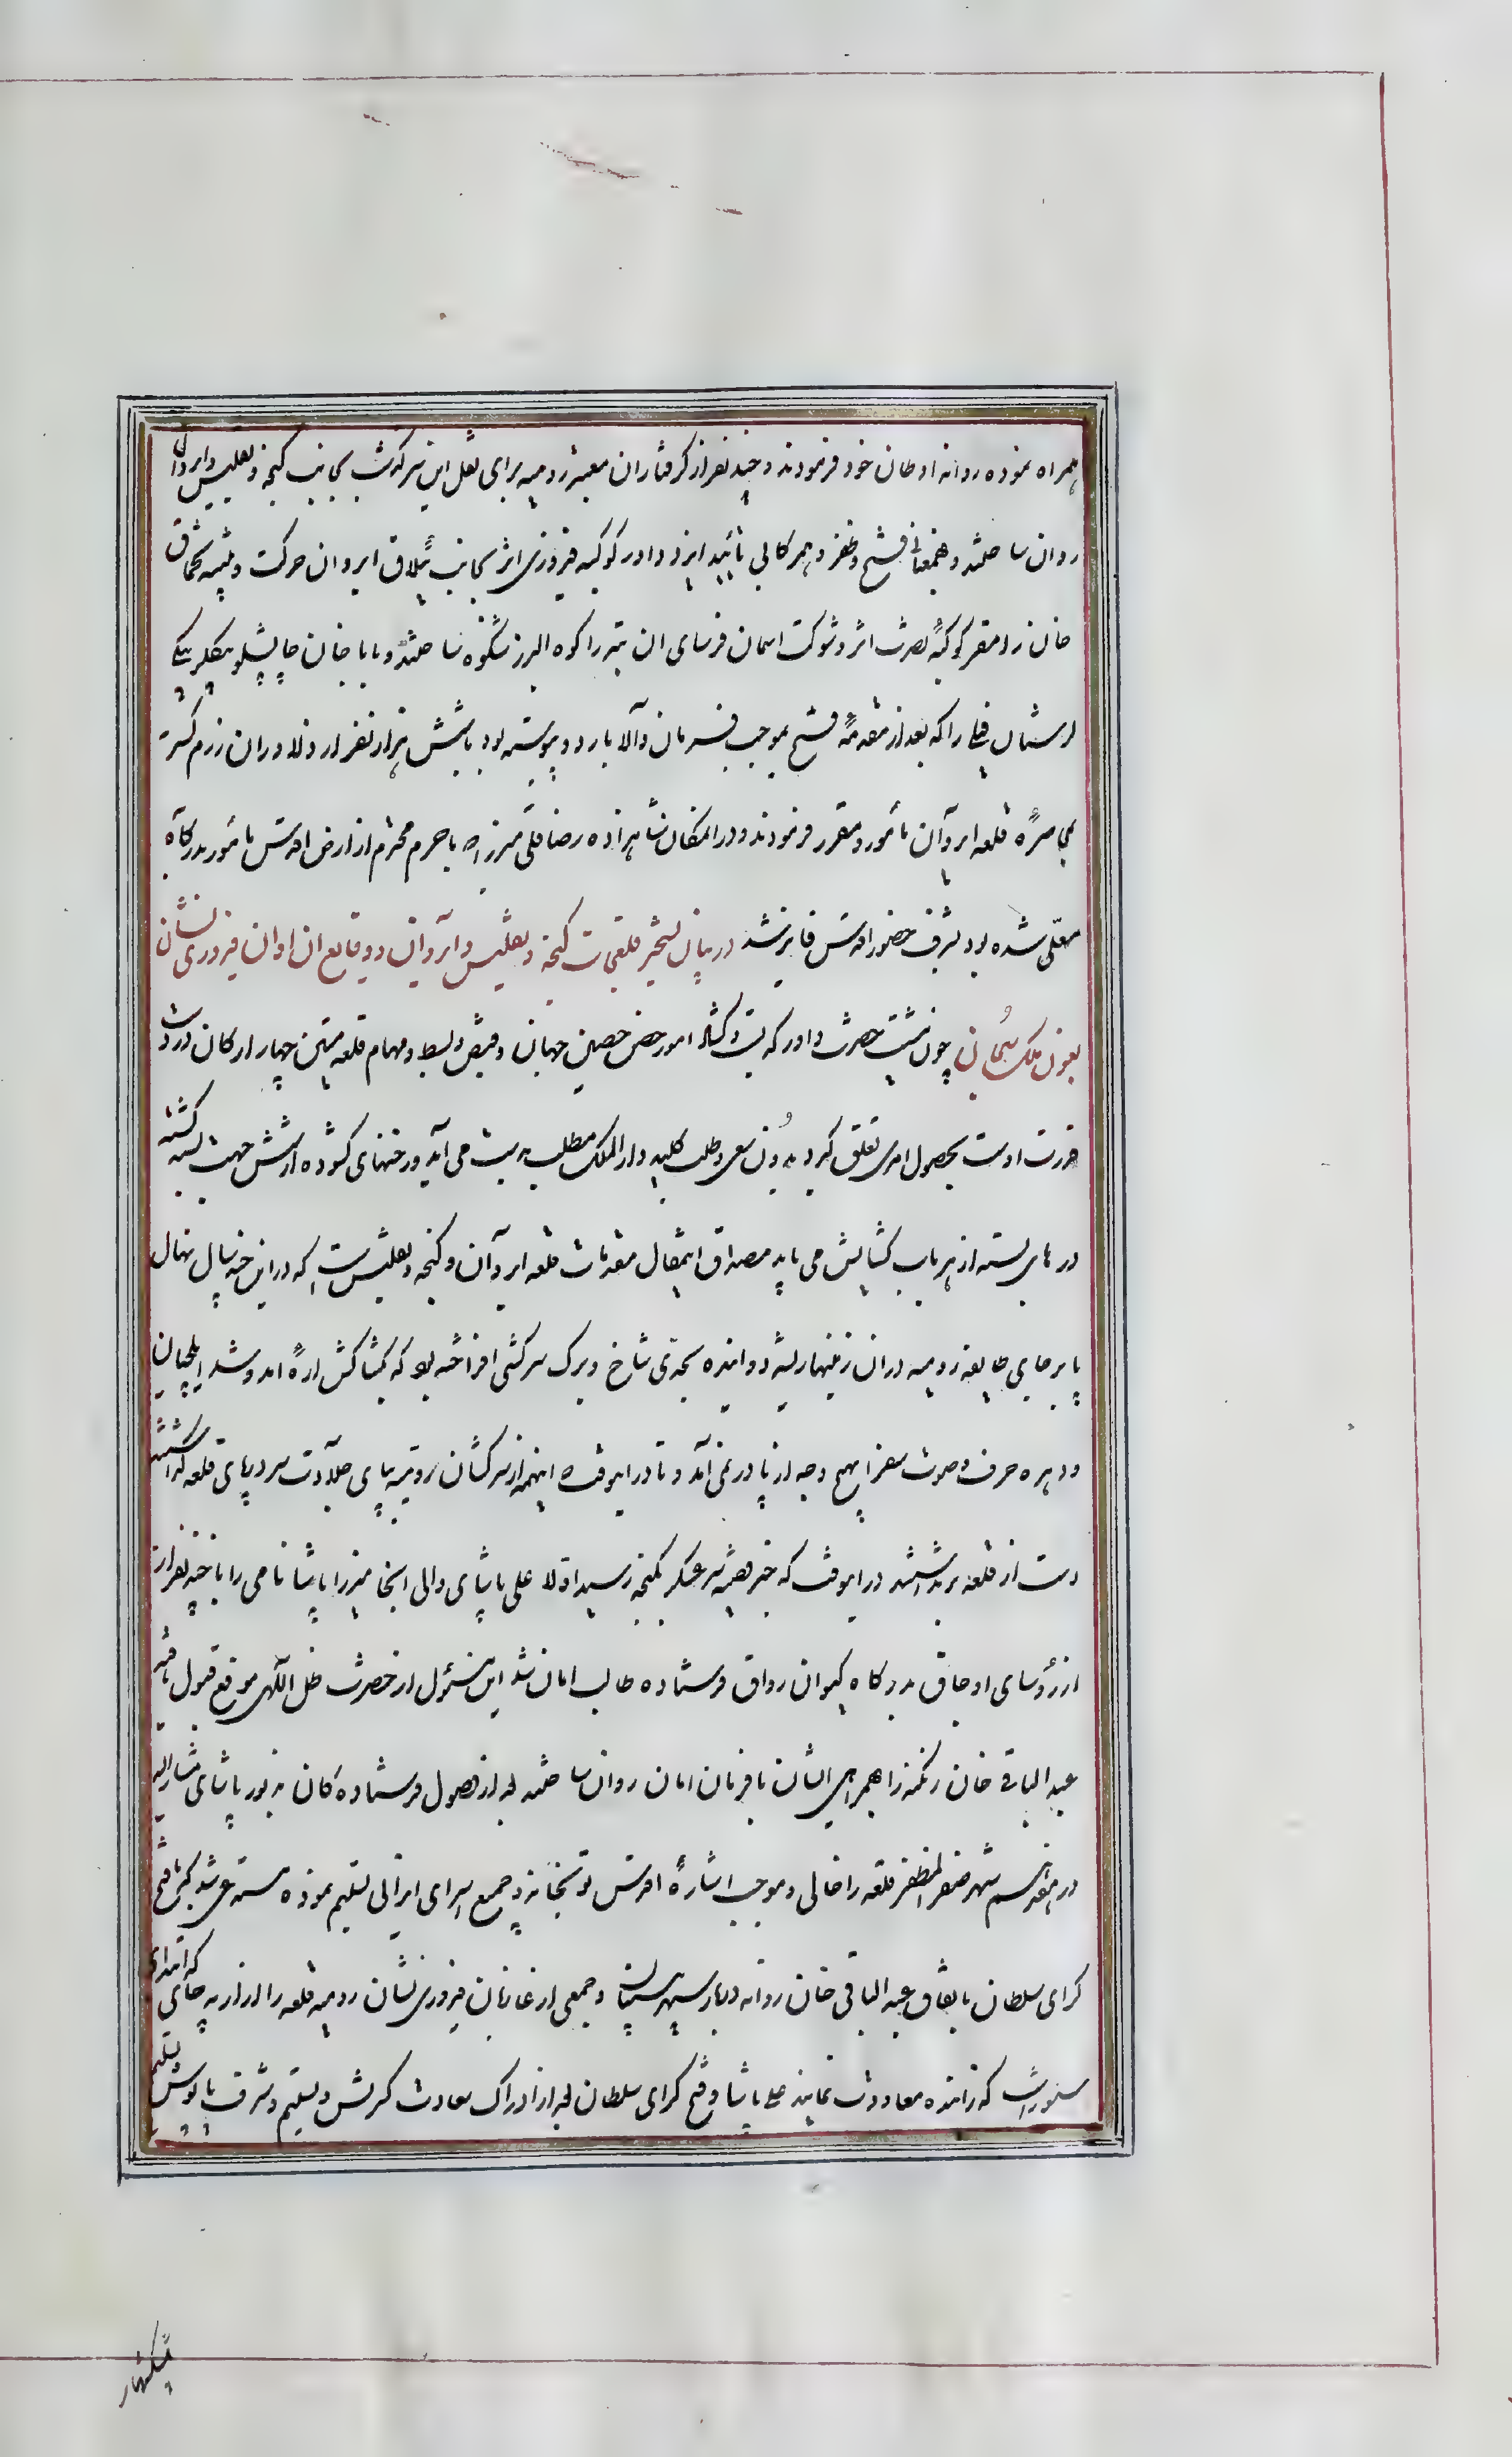 همراه نموده روانه اوطان خود فرمودند و چند نفر از گرفتاران معتبر رومیه برای نقل این سرگذشت بجانب گنجه و تفلیس و ایروان
روان ساختند و همعنان فتح و ظفر و همرکابی تائید ایزد داور کوکبه فیروزی اثر بجانب ئیلاق ایروان حرکت و تپه یخماق
خان را مقر کوکبهٔ نصرت اثر و شوکت اسمان فرسای ان تپه را کوه البرز شکوه ساختند و بابا خان چاپشلو بیگلربیگی
لرستان فیلی را که بعد از مقدمهٔ فتح بموجب فرمان والا باردو پیوسته بود با شش هزار نفر از دلاوران رزم گستر
بمحاصرهٔ قلعه ایروان مأمور و مقرر فرمودند و در المکان شاهزاده رضا قلی میرزا که با حرم محترم از ارض اقدس مأمور بدرگاه
معلّی شده بود بشرف حضور اقدس فایز شد در بیان تسخیر قلعجات گنجه و تفلیس و ایروان و وقایع ان اوان فیروزی نشان
بعون ملک سُبحان چون مشیت حضرت داور که بست و گشاد امور حصن حصین جهان و قبض و بسط و مهام قلعه متین چهار ارکان در دست
قدرت اوست بحصول امری تعلق گیرد بدُون سعی و طلب کلید دار الملک مطلب بدست می آید و رخنهای گشوده از شش جهت بسته گشته
در های بسته از هر باب گشایش می یابد مصداق اینمقال مقدمات قلعه ایروان و گنجه و تفلیس است که در این چند سال نهال
پا بر جای طایفه رومیه در ان زمینها ریشه دوانیده بحدی شاخ و برک سرکشی افراخته بود که بکشاکش ارهٔ امد و شد ایلچیان
و دهره حرف و صوت سفرا بهیچ وجه از پا در نمی آمد و تا در اینوقت اینهمه از سرکشان رومیه بپای جلادت سر در پای قلعه گذاشتند
دست از قلعه بر نداشتند در اینوقت که خبر هضیمه سرعسکر بگنجه رسید اولا علی پاشای والی انجا میرزا پاشا نامی را با چند نفر از
از رؤسای اوجاق بدرگاه کیوان رواق فرستاده طالب امان شد این مسئول از حضرت ظل اللهی موقع قبول یافته
عبد الباقی خان زنگنه را بهمراهی ایشان با فرمان امان روان ساختند بعد از وصول فرستاده کان مزبور پاشای مشار الیه
در هفدهم شهر صفر المظفر قلعه را خالی و بموجب اشارهٔ اقدس توپخانه و جمیع اسرای ایرانی تسلیم نموده مستدعی شد که با فتح
گرای سلطان باتفاق عبد الباقی خان روانه دربار سپهر بنیان و جمعی از غازیان فیروزی نشان رومیه قلعه را از ارپه چای که ابتدای
سنور است گذرانیده معاودت نمایند علی پاشا و فتح گرای سلطان بعد از ادراک سعادت کرنش و تسلیم و شرف پابوس و تسلیم
پیشکشهای